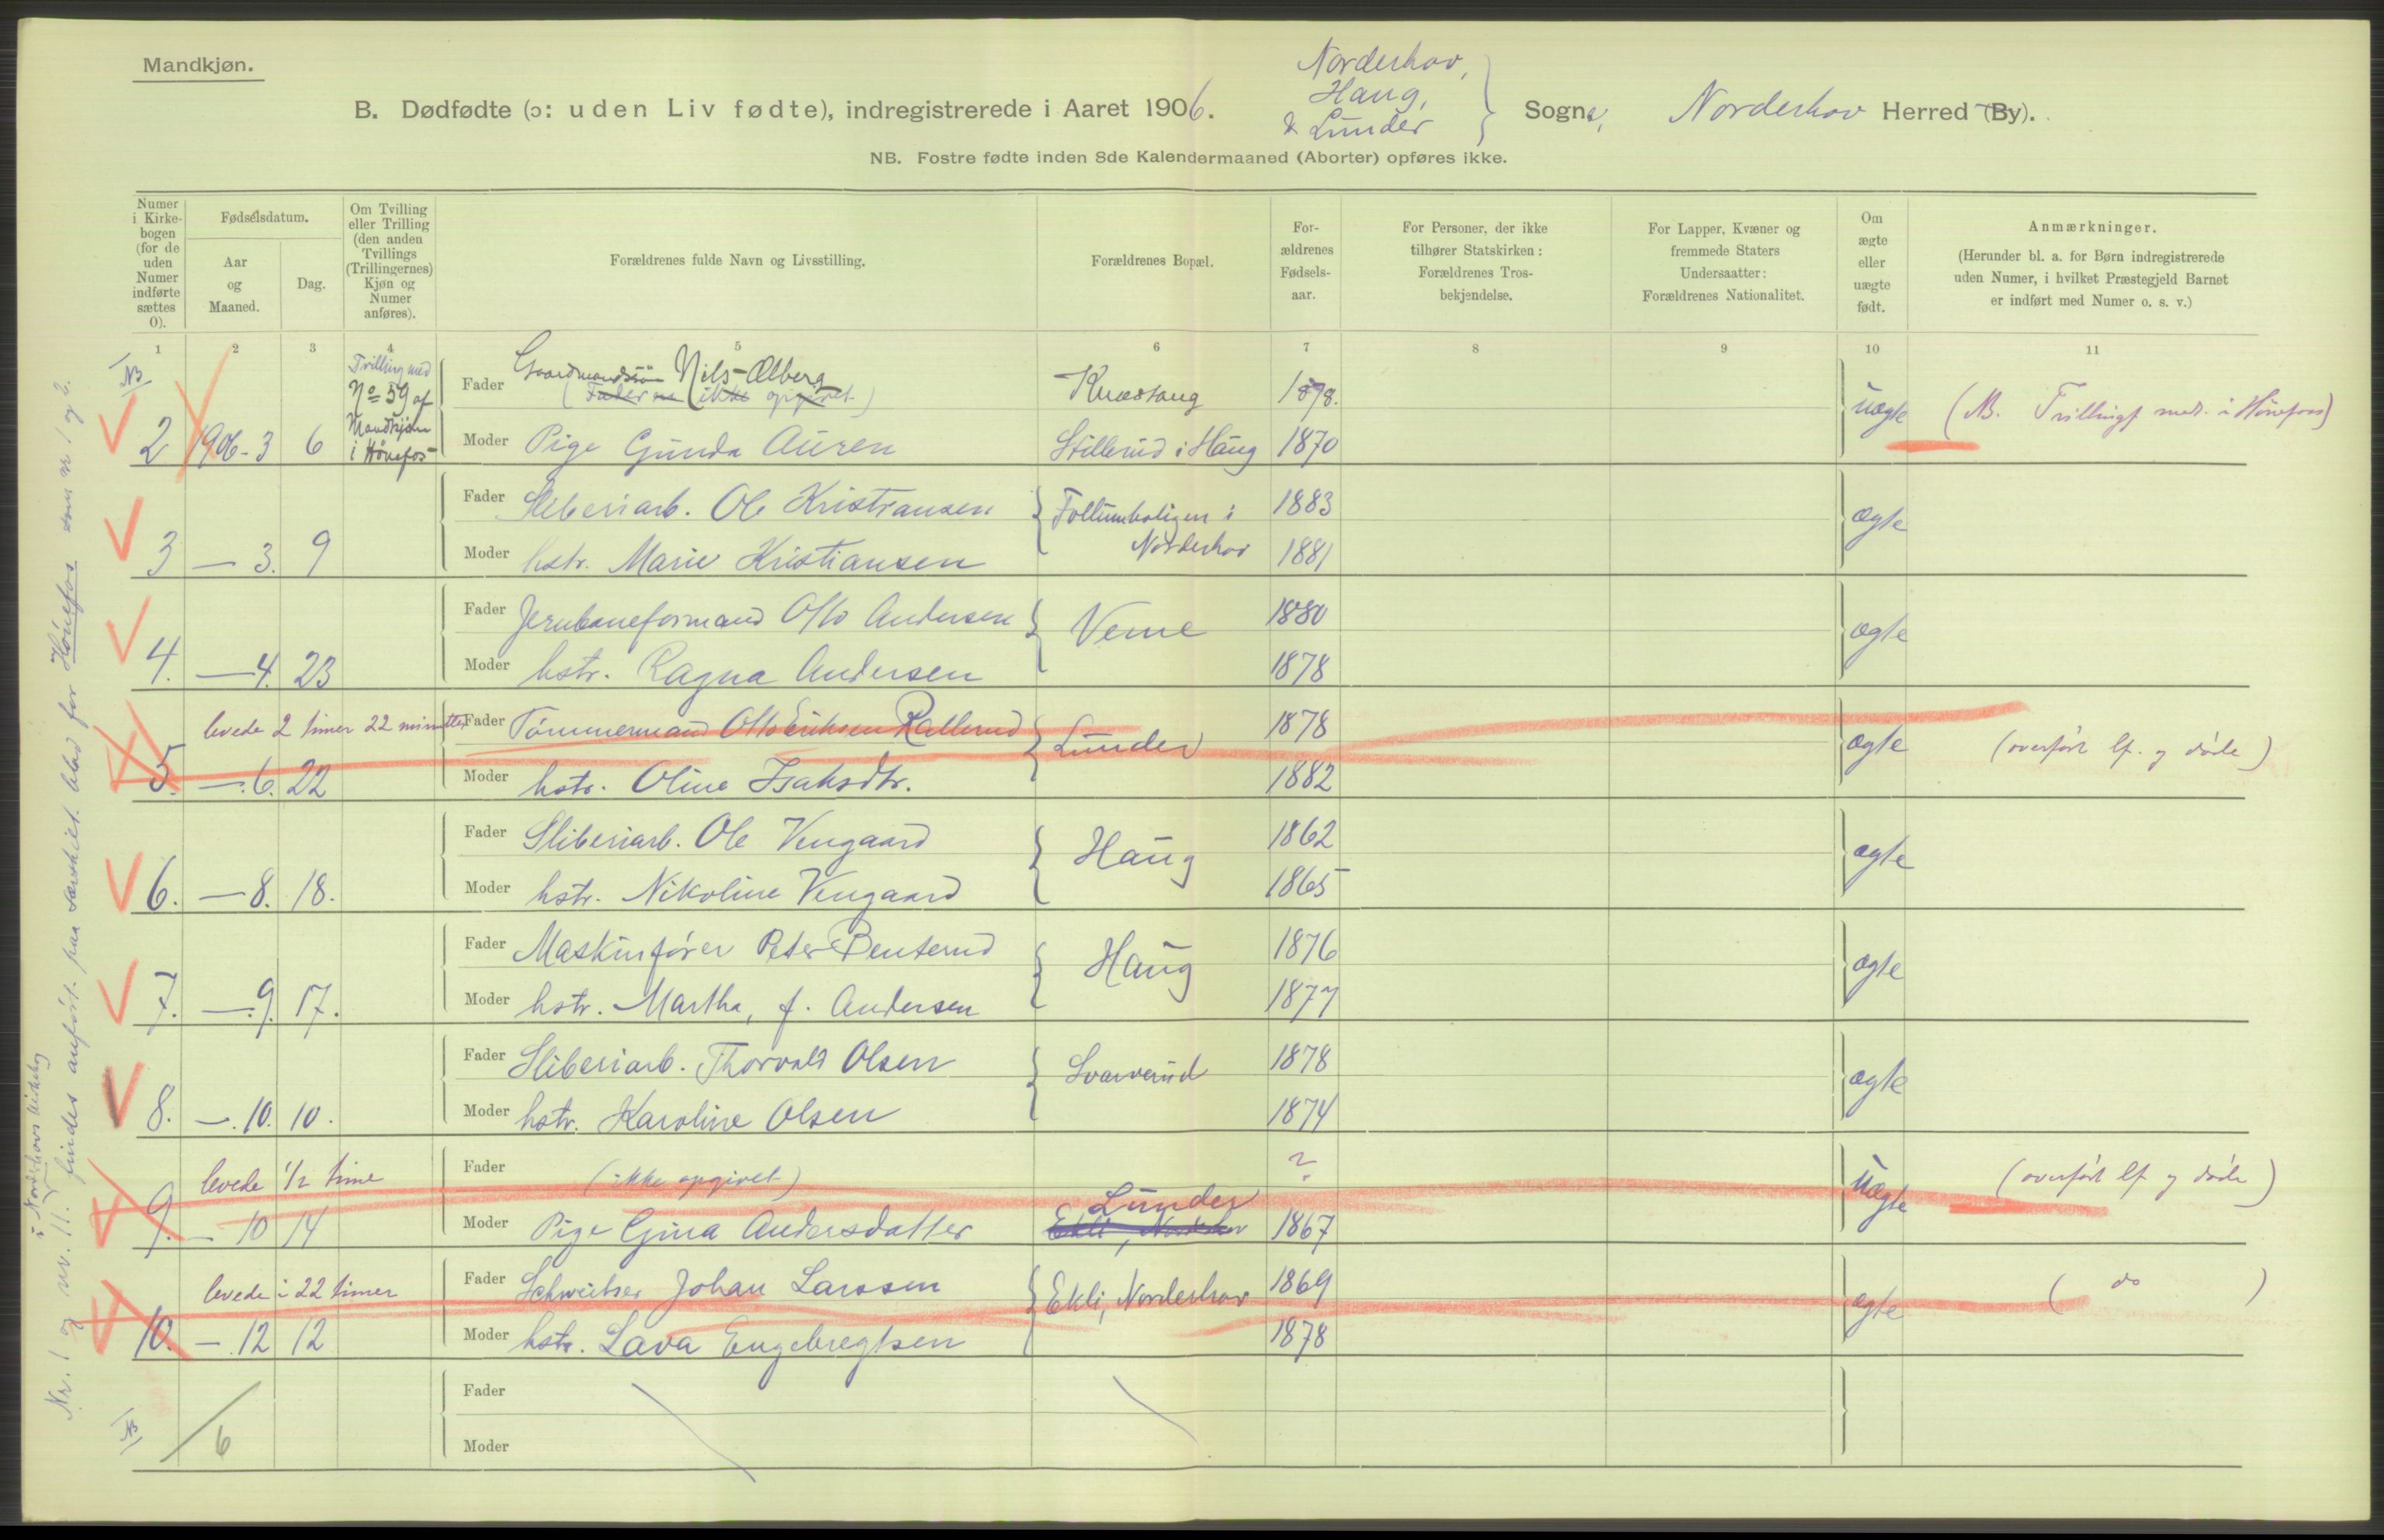 Mandkjøn.
B. Dødfødte (ɔ: uden Liv fødte), indregistrerede i Aaret 1906.
Norderhov,
Haug,
& Lunder
Sogne,
Norderhov Herred (By).
NB. Fostre fødte inden 8de Kalendermaaned (Aborter) opføres ikke.
Numer i Kirke-bogen (for de uden Numer indførte sættes 0).
Fødselsdatum.
Aar og Maaned.
Dag.
Om Tvilling eller Trilling (den anden Tvillings (Trillingernes) Kjøn og Numer anføres).
Forældrenes fulde Navn og Livsstilling.
Forældrenes Bopæl.
For-ældrenes Fødsels-aar.
For Personer, der ikke tilhører Statskirken: Forældrenes Tros-bekjendelse.
For Lapper, Kvæner og fremmede Staters Undersaatter: Forældrenes Nationalitet.
Om ægte eller uægte født.
Anmærkninger.
(Herunder bl. a. for Børn indregistrerede uden Numer, i hvilket Præstegjeld Barnet er indført med Numer o. s. v.)
1 2 3 4 5 6 7 8 9 10 11
NB
Tvilling med
No 59 af
Mandkjøn
i Hønefos
Fader Gaardmandssøn Nils Ølberg
(Faderen ikke opgivet)
Knestang 1878.
uægte
2 1906-3 6 Moder Pige Gunda Auren Stillerud i Haug 1870
Fader Sliberiarb. Ole Kristiansen Follumboligen i Norderhov 1883
ægte
3 — 3. 9 Moder hstr. Marie Kristiansen 1881
Fader Jernbaneformand Otto Andersen Veme 1880
ægte
4. — 4. 23 Moder hstr. Ragna Andersen 1878
levede 2 timer 22 minutter
Fader Tømmermand Otto Eriksen Rallerud Lunder 1878
ægte (overført lf. og døde)
5. — 6. 22 Moder hstr. Oline Isaksdtr. 1882
Fader Sliberiarb. Ole Vengaard Haug 1862
ægte
6. — 8. 18. Moder hstr. Nikoline Vengaard 1865
Fader Maskinfører Peter Benterud Haug 1876
ægte
7. — 9. 17. Moder hstr. Martha, f. Andersen 1877
Fader Sliberiarb. Thorvald Olsen Svarverud 1878
ægte
8. — 10. 10. Moder hstr. Karoline Olsen 1874
levede 1/2 time
Fader (ikke opgivet) ?
Lunder
uægte (overført lf og døde)
9. — 10 14 Moder Pige Gina Andersdatter Ekli, Norderhov 1867
levede i 22 timer
Fader Schweitser Johan Larssen Ekli, Norderhov 1869
ægte ( do )
10. — 12 12 Moder hstr. Lava Engebregtsen 1878
Fader
NB 6
Moder
Nr. 1 og nr. 11. findes anført paa særskilt blad for Hønefos som nr 1 og 2.
i Norderhovs kirkebog